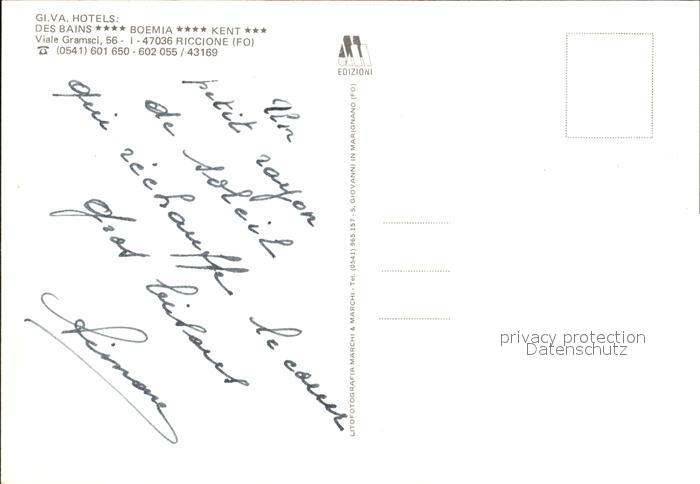 GI.VA. HOTELS:
DES BAINS **** BOEMIA **** KENT ***
Viale Gramsci, 56 - I - 47036 RICCIONE (FO)
☎ (0541) 601 650 - 602 055 / 43169
EDIZIONI
LITOFOTOGRAFIA MARCHI & MARCHI - Tel. (0541) 965 157 - S. GIOVANNI IN MARIGNANO (FO)
Un
petit rayon
de soleil
qui réchauffe le coeur
Gros bisous
Simone
privacy protection
Datenschutz